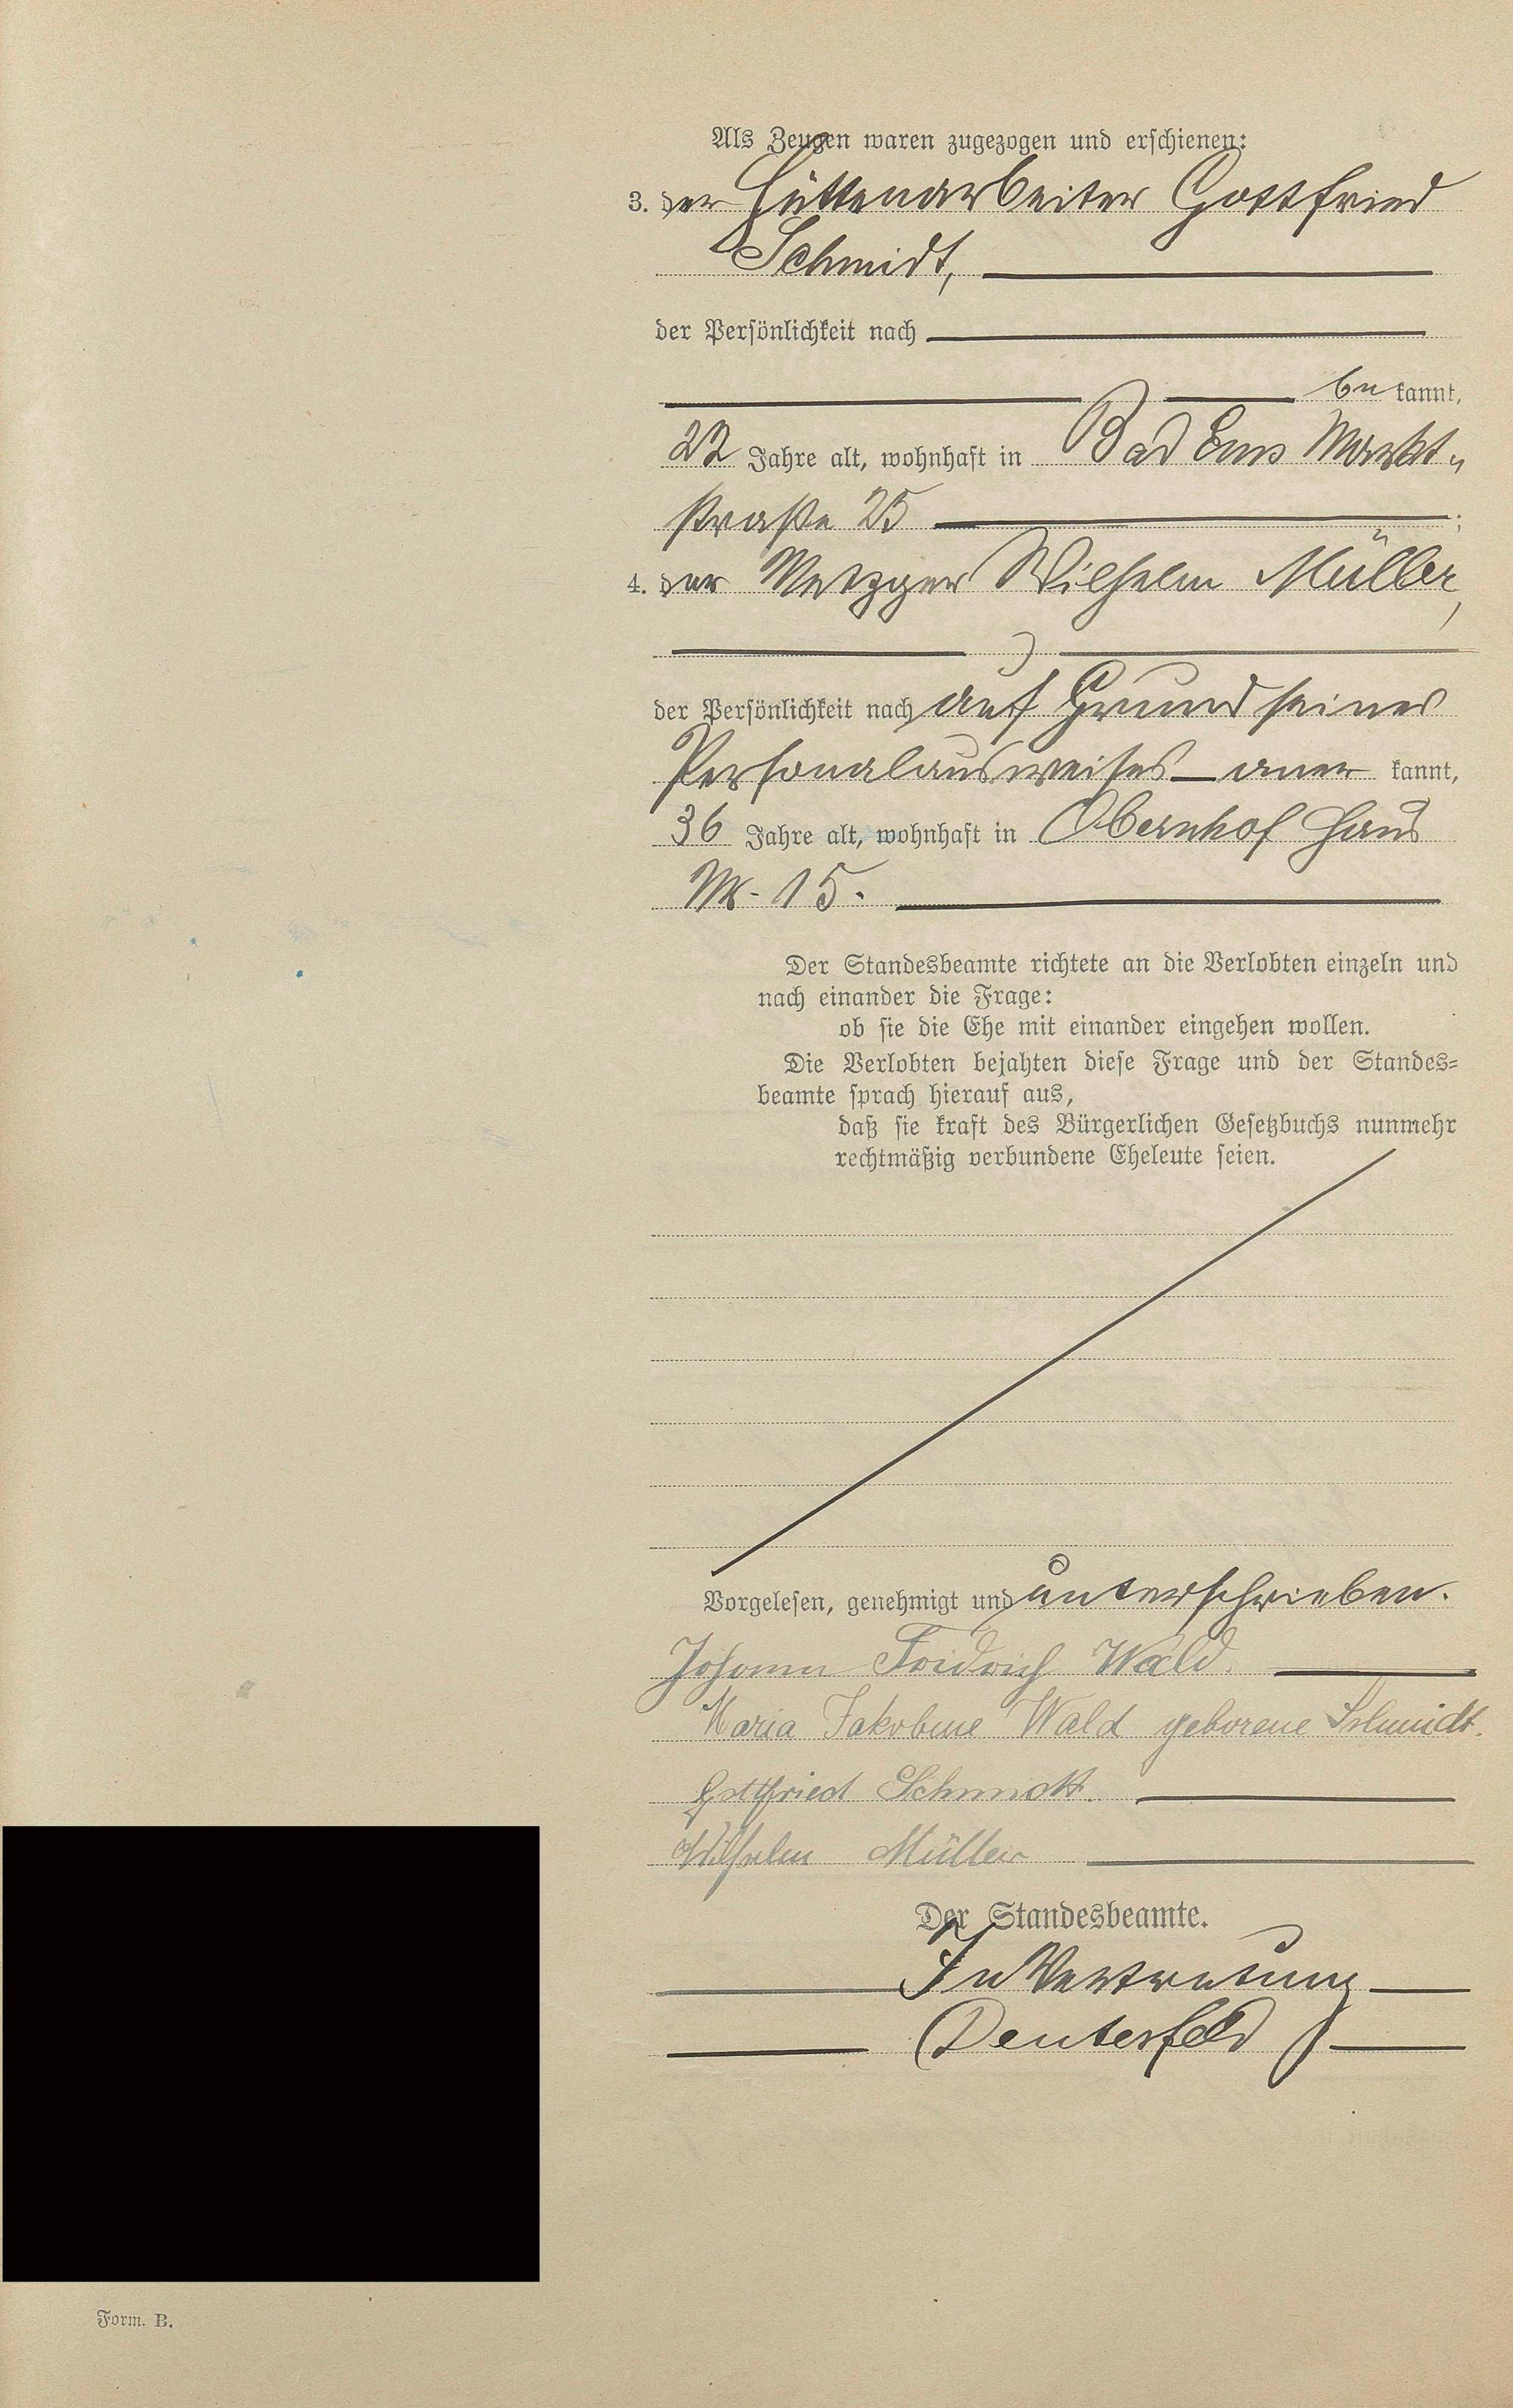 Als Zeugen waren zugezogen und erschienen:
3. der Hüttenarbeiter Gottfried
Schmidt,
der Persönlichkeit nach
be kannt,
22 Jahre alt, wohnhaft in Bad Ems Markt-
straße 25 ;
4. der Metzger Wilhelm Müller,
der Persönlichkeit nach auf Grund seines
Personalausweises aner kannt,
36 Jahre alt, wohnhaft in Obernhof Haus
Nr. 15.
Der Standesbeamte richtete an die Verlobten einzeln und
nach einander die Frage:
ob sie die Ehe mit einander eingehen wollen.
Die Verlobten bejahten diese Frage und der Standes-
beamte sprach hierauf aus,
daß sie kraft des Bürgerlichen Gesetzbuchs nunmehr
rechtmäßig verbundene Eheleute seien.
Vorgelesen, genehmigt und unterschrieben.
Johann Fridrich Wald.
Maria Jakobine Wald geborene Schmidt.
Gottfried Schmidt.
Wilhelm Müller
Der Standesbeamte.
In Vertretung
Deuterfeld
Form. B.